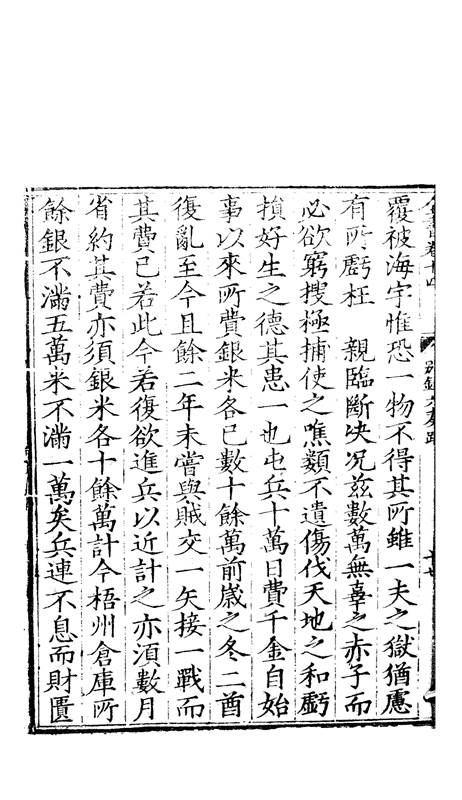 覆被海宇惟恐一物不得其所雖一夫之獄猶慮
有所虧枉　親臨斷决况兹數萬無辜之赤子而
必欲窮搜極捕使之噍類不遺傷伐天地之和虧
損好生之德其患一也屯兵十萬日費千金自始
事以來所費銀米各已數十餘萬前歲之冬二酋
復亂至今且餘二年未嘗與賊交一矢接一戰而
其費已若此今若復欲進兵以近計之亦須數月
省約其費亦須銀米各十餘萬計今梧州倉庫所
餘銀不滿五萬米不滿一萬矣兵連不息而財匱